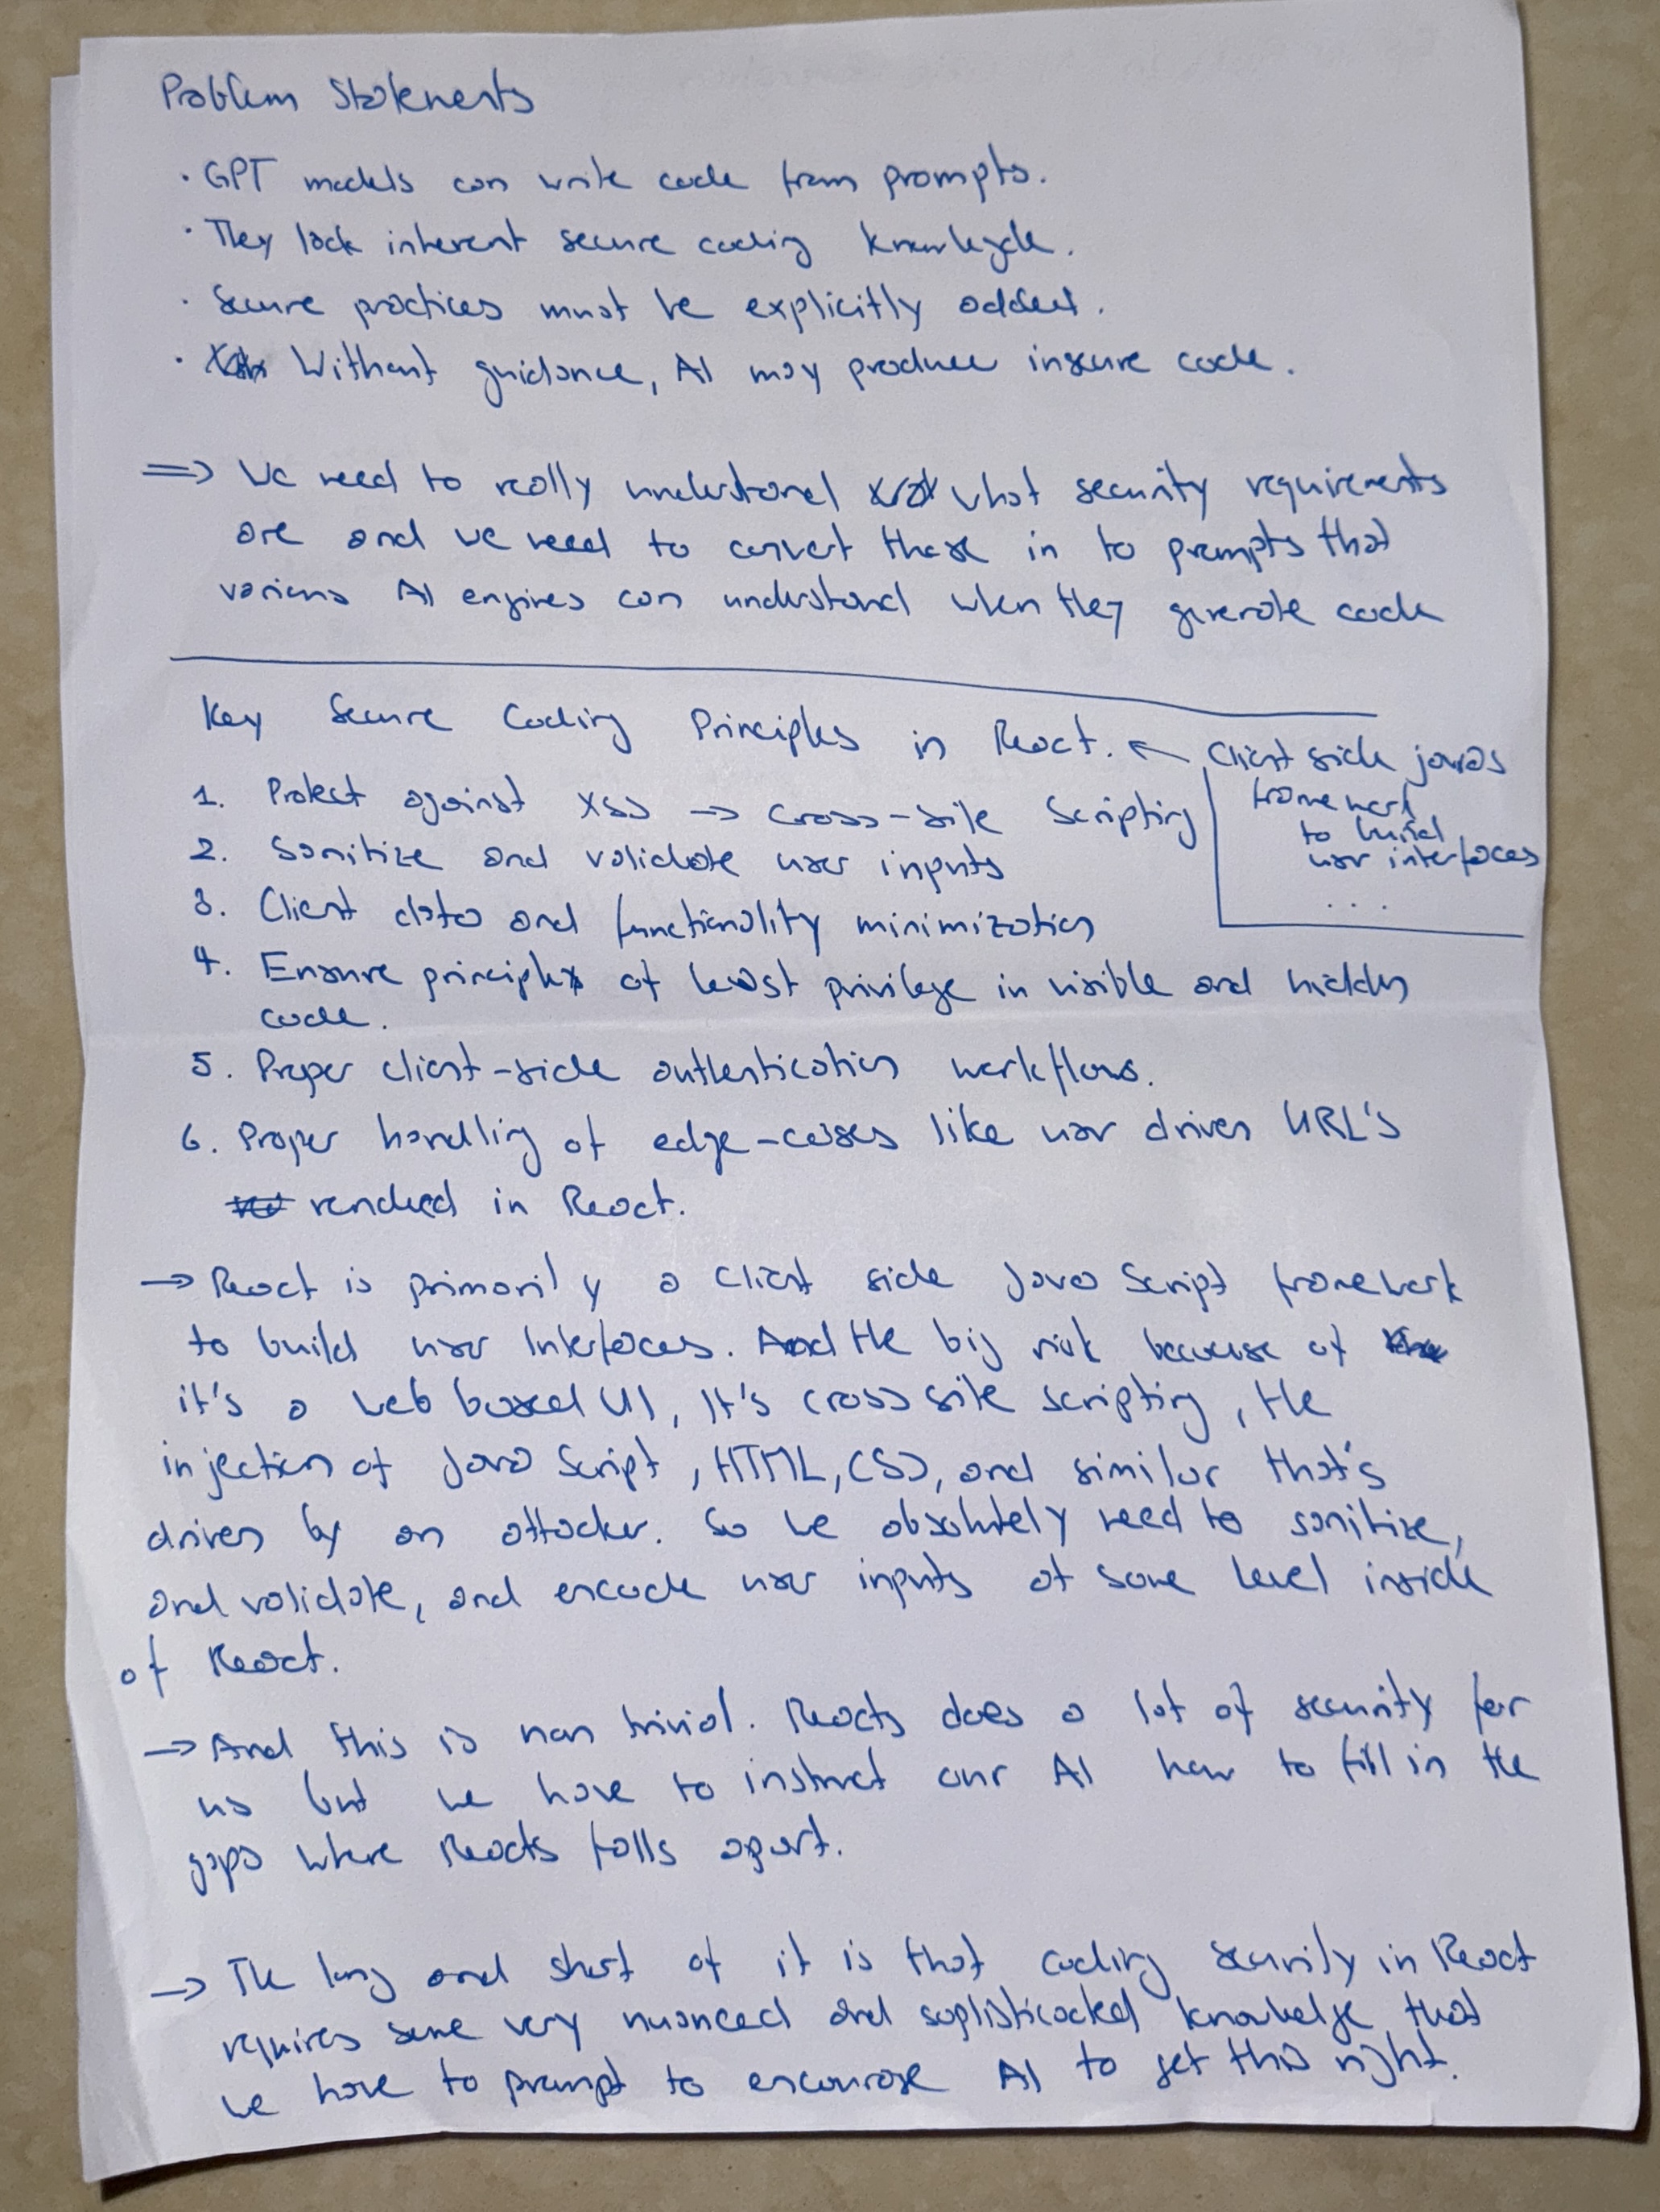 Problem Statements
· GPT models can write code from prompts.
· They lack inherent secure coding knowledge.
· Secure practices must be explicitly added.
· Without guidance, AI may produce insecure code.
=> We need to really understand what security requirements
are and we need to convert these in to prompts that
various AI engines can understand when they generate code
Key Secure Coding Principles in React. ← Client side javas
framework
to build
user interfaces
...
1. Protect against XSS → Cross-site Scripting
2. Sanitize and validate user inputs
3. Client data and functionality minimization
4. Ensure principle of least privilege in visible and hidden
code.
5. Proper client-side authentication workflows.
6. Proper handling of edge-cases like user driven URL's
rendered in React.
→ React is primarily a client side Java Script framework
to build user Interfaces. And the big risk because of
it's a web based UI, It's cross site scripting, the
injection of Java Script, HTML, CSS, and similar that's
driven by an attacker. So we absolutely need to sanitize,
and validate, and encode user inputs at some level inside
of React.
→ And this is non trivial. Reacts does a lot of security for
us but we have to instruct our AI how to fill in the
gaps where Reacts falls apart.
→ The long and short of it is that coding security in React
requires some very nuanced and sophisticated knowledge that
we have to prompt to encourage AI to get this right.